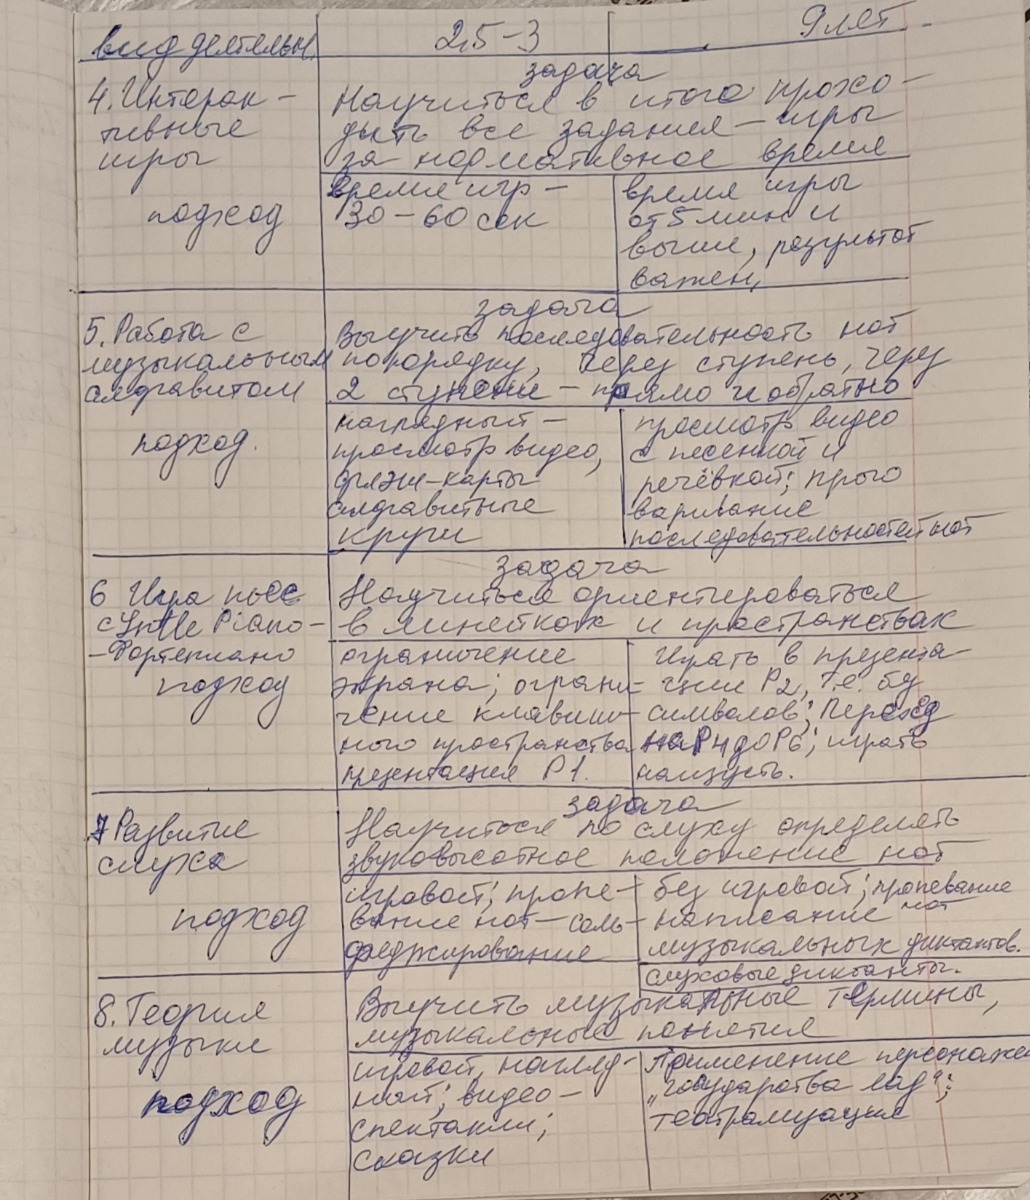 вид деятельн. 2,5-3 9 лет
задача
4. Интерак-
тивные
игры
Научиться в итоге прохо-
дить все задания - игры
за нормативное время
подход
время игр -
30-60 сек
время игры
от 5 мин и
выше, результат
важен,
задача
5. Работа с
музыкальным
алфавитом
Выучить последовательность нот
по порядку, через ступень, через
2 ступени - прямо и обратно
подход.
наглядный -
просмотр видео,
флэш-карты
алфавитные
круги
просмотр видео
с песенкой и
речёвкой; прого
варивание
последовательностей нот
задача
6 Игра пьес
с Little Piano-
-Фортепиано
Научиться ориентироваться
в линейках и пространствах
подход
ограничение
экрана; ограни-
чение клавиш-
ного пространства
презентация P1.
Играть в презента-
ции P2, т.е. бу
символов; Переход
на P4 до P6; играть
наизусть.
задача
7 Развитие
слуха
Научиться по слуху определять
звуковысотное положение нот
подход
игровой; пропе-
вание нот - соль-
феджирование
без игровой; пропевание
нот
написание
музыкальных диктантов.
слуховые диктанты.
8. Теория
музыки
Выучить музыкальные термины,
музыкальные понятия
подход
игровой, нагляд-
ный; видео-
спектакли;
сказки
Применение персонажей
„государства лад";
театрализация